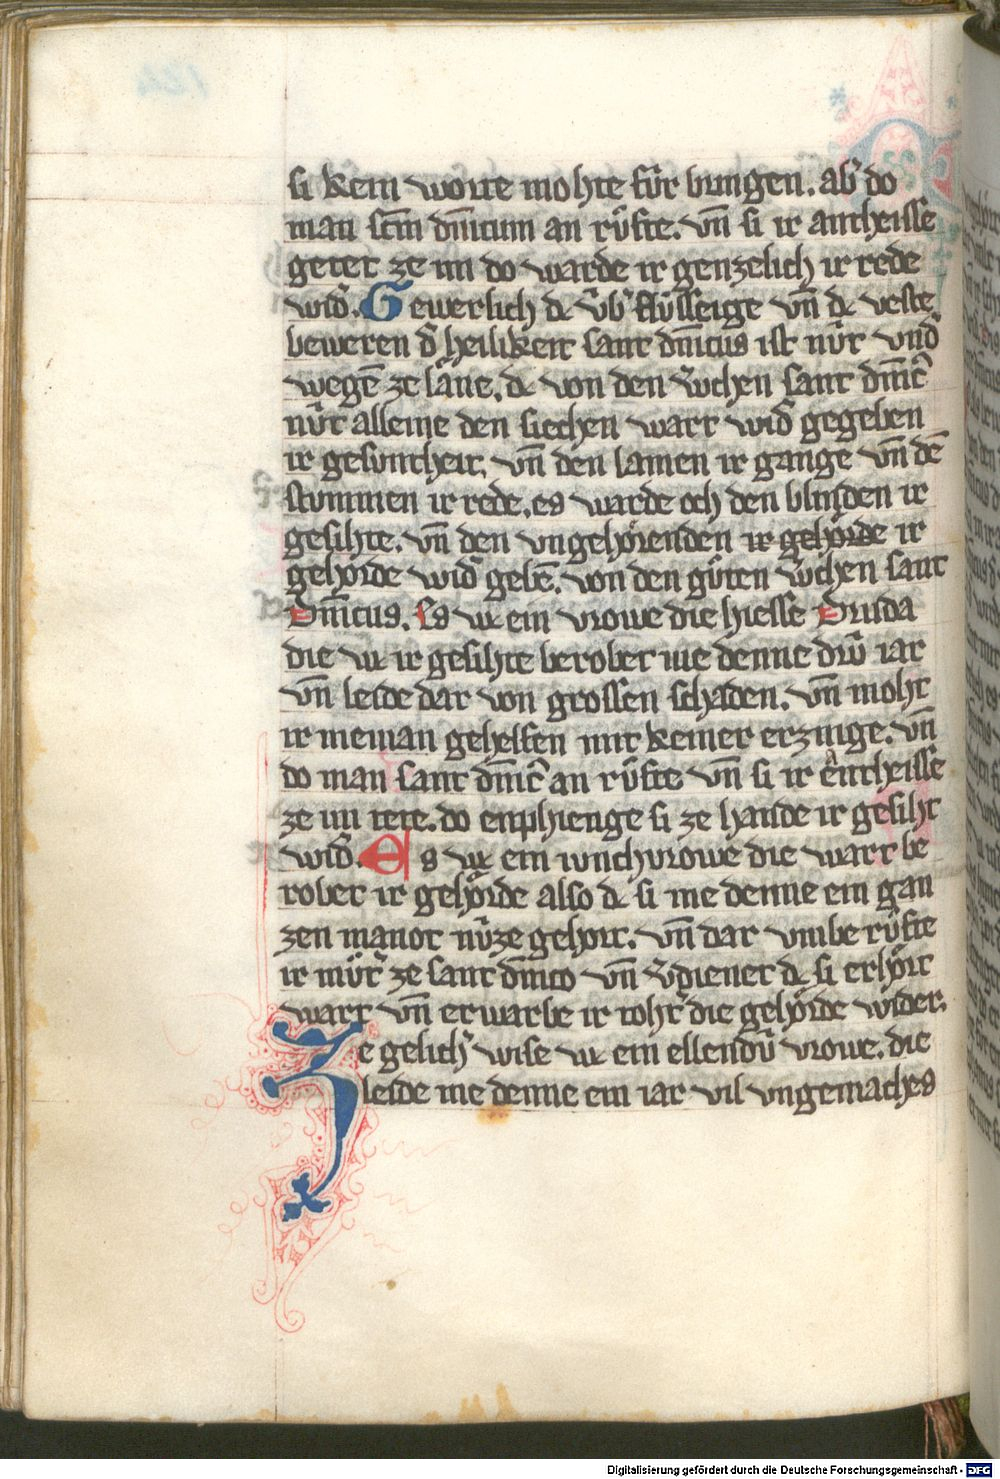 si kein worte mohte fúr bringen. ab͛ do
man scm̄ dn̄icum an růfte. vn̄ si ir antheisse
getet ze im do warde ir genzelich ir rede
wid͛. Gewerlich dc v́b͛ flv́sseige vn̄ dc veste
beweren d͛ heilikeit sant dn̄icus ist nv́t vnd͛
wegē ze lâne. dc von den v̊chen sant dn̄ic̄
nv́t alleine den siechen wart wid͛ gegeben
ir gesuntheit. vn̄ den lamen ir gange vn̄ dē
stummen ir rede. es warde och den blinden ir
gesihte. vn̄ den vngehörenden ir gehörde ir
gehörde wid͛ gebē. von den gůten v̊chen sant
Dn̄icus. Es wc ein vrowe die hiesse Drisda
die wc ir gesihte berobet me denne drv́ iar
vn̄ leide dar von grossen schaden. vn̄ moht
ir nieman gehelfen mit keiner erznige. vn̄
do man sant dn̄ic̄ an růfte vn̄ si ir entheisse
ze im tete. do enphienge si ze hande ir gesiht
wid͛. Es wc ein iunchvrowe die wart be
robet ir gehörde also dc si me denne ein gan
zen manot nv́ze gehort. vn̄ dar vmbe růfte
ir můt͛ ze sant dn̄ico vn̄ v͛dienet dc si erhört
wart vn̄ erwarbe ir toht͛ die gehörde wider.
Ze gelich͛ wise wc ein ellendv́ vrowe. die
leide me denne ein iar vil vngemaches
Digitalisierung gefördert durch die Deutsche Forschungsgemeinschaft - DFG